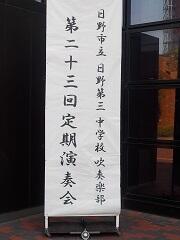 日野市立 日野第三中学校 吹奏楽部
第二十三回定期演奏会